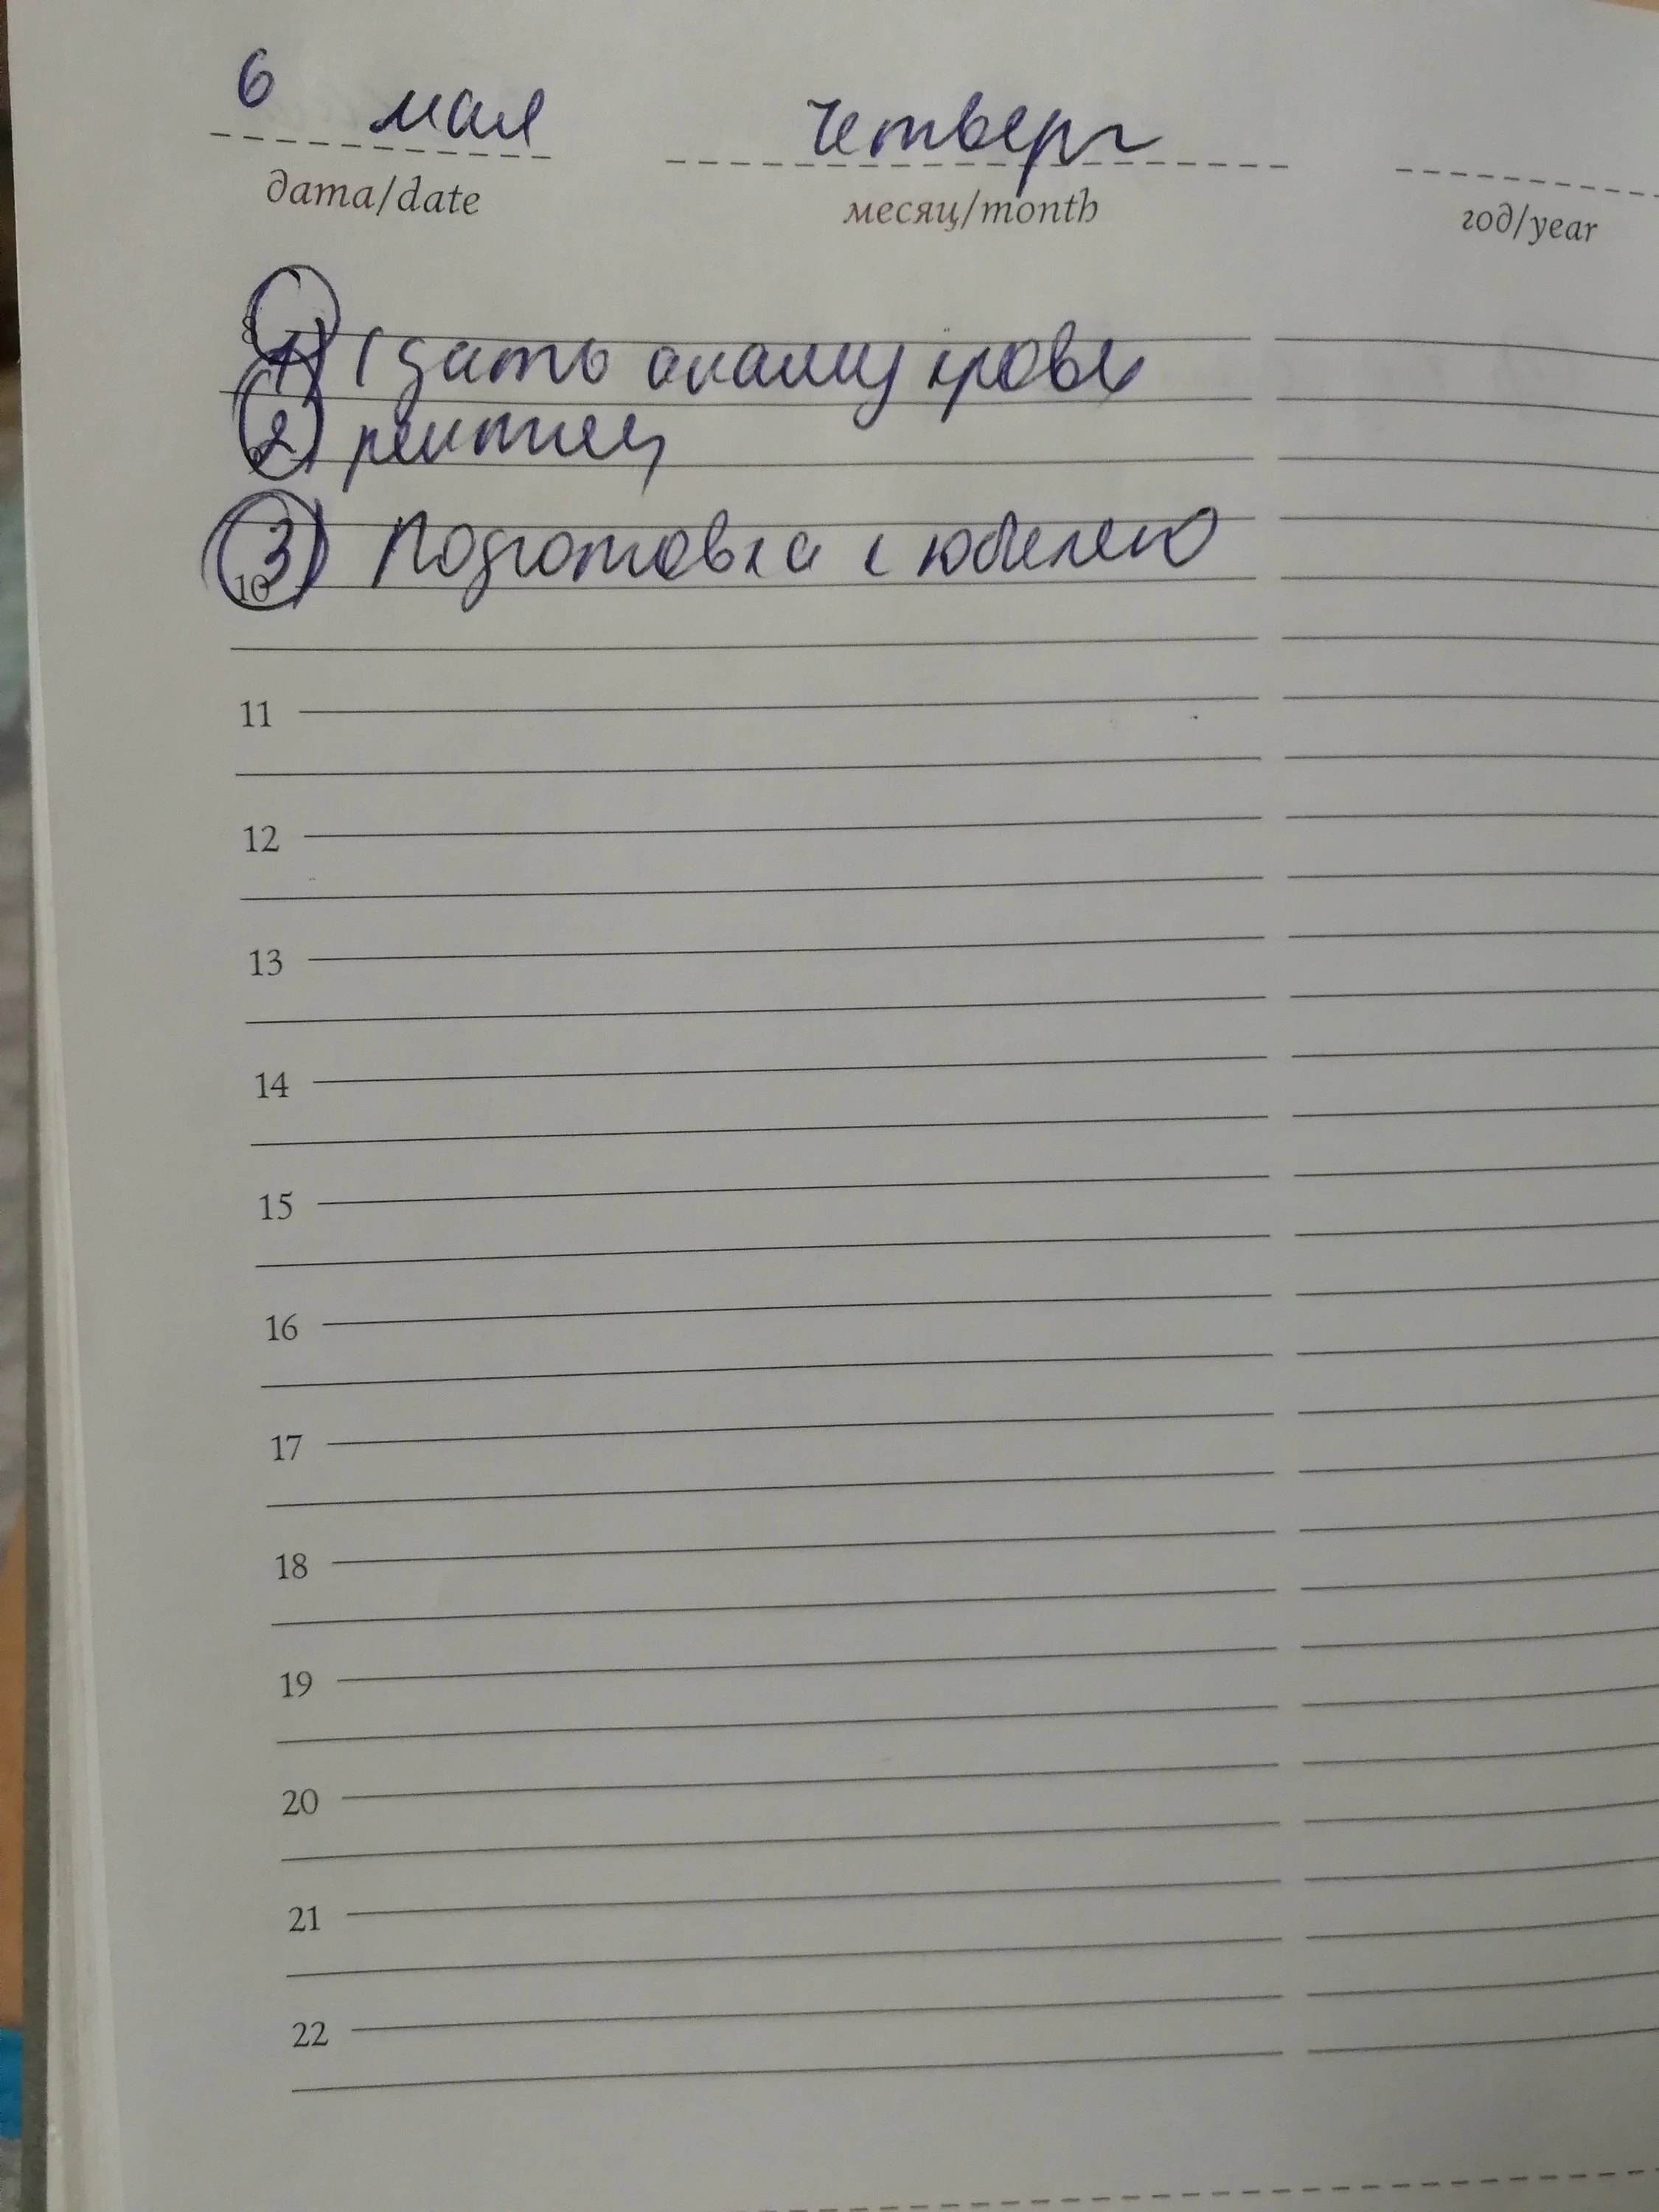 6 мая четверг
дата/date месяц/month год/year
8
1) Сдать анализ крови
2)
3) Подготовка к юбилею
10
11
12
13
14
15
16
17
18
19
20
21
22